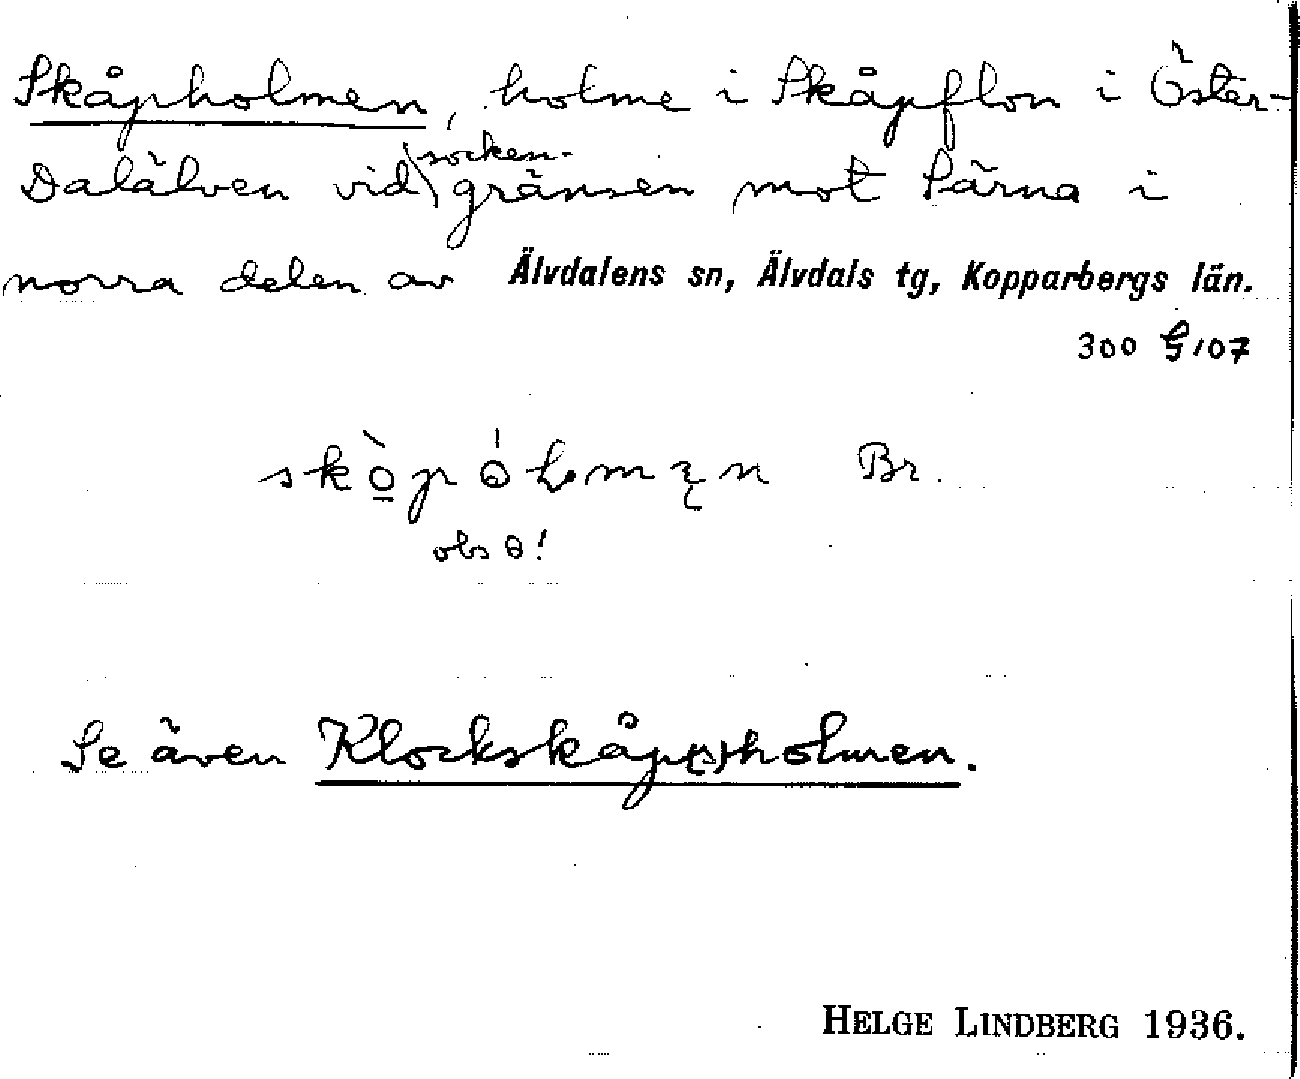 Skåpholmen, holme i Skåpflon i Öster-
Dalälven vid socken-
gränsen mot Särna i
norra delen av Älvdalens sn, Älvdals tg, Kopparbergs län.
300 107
Br.
obs ɵ!
Se även Klockskåp(s)holmen.
HELGE LINDBERG 1936.